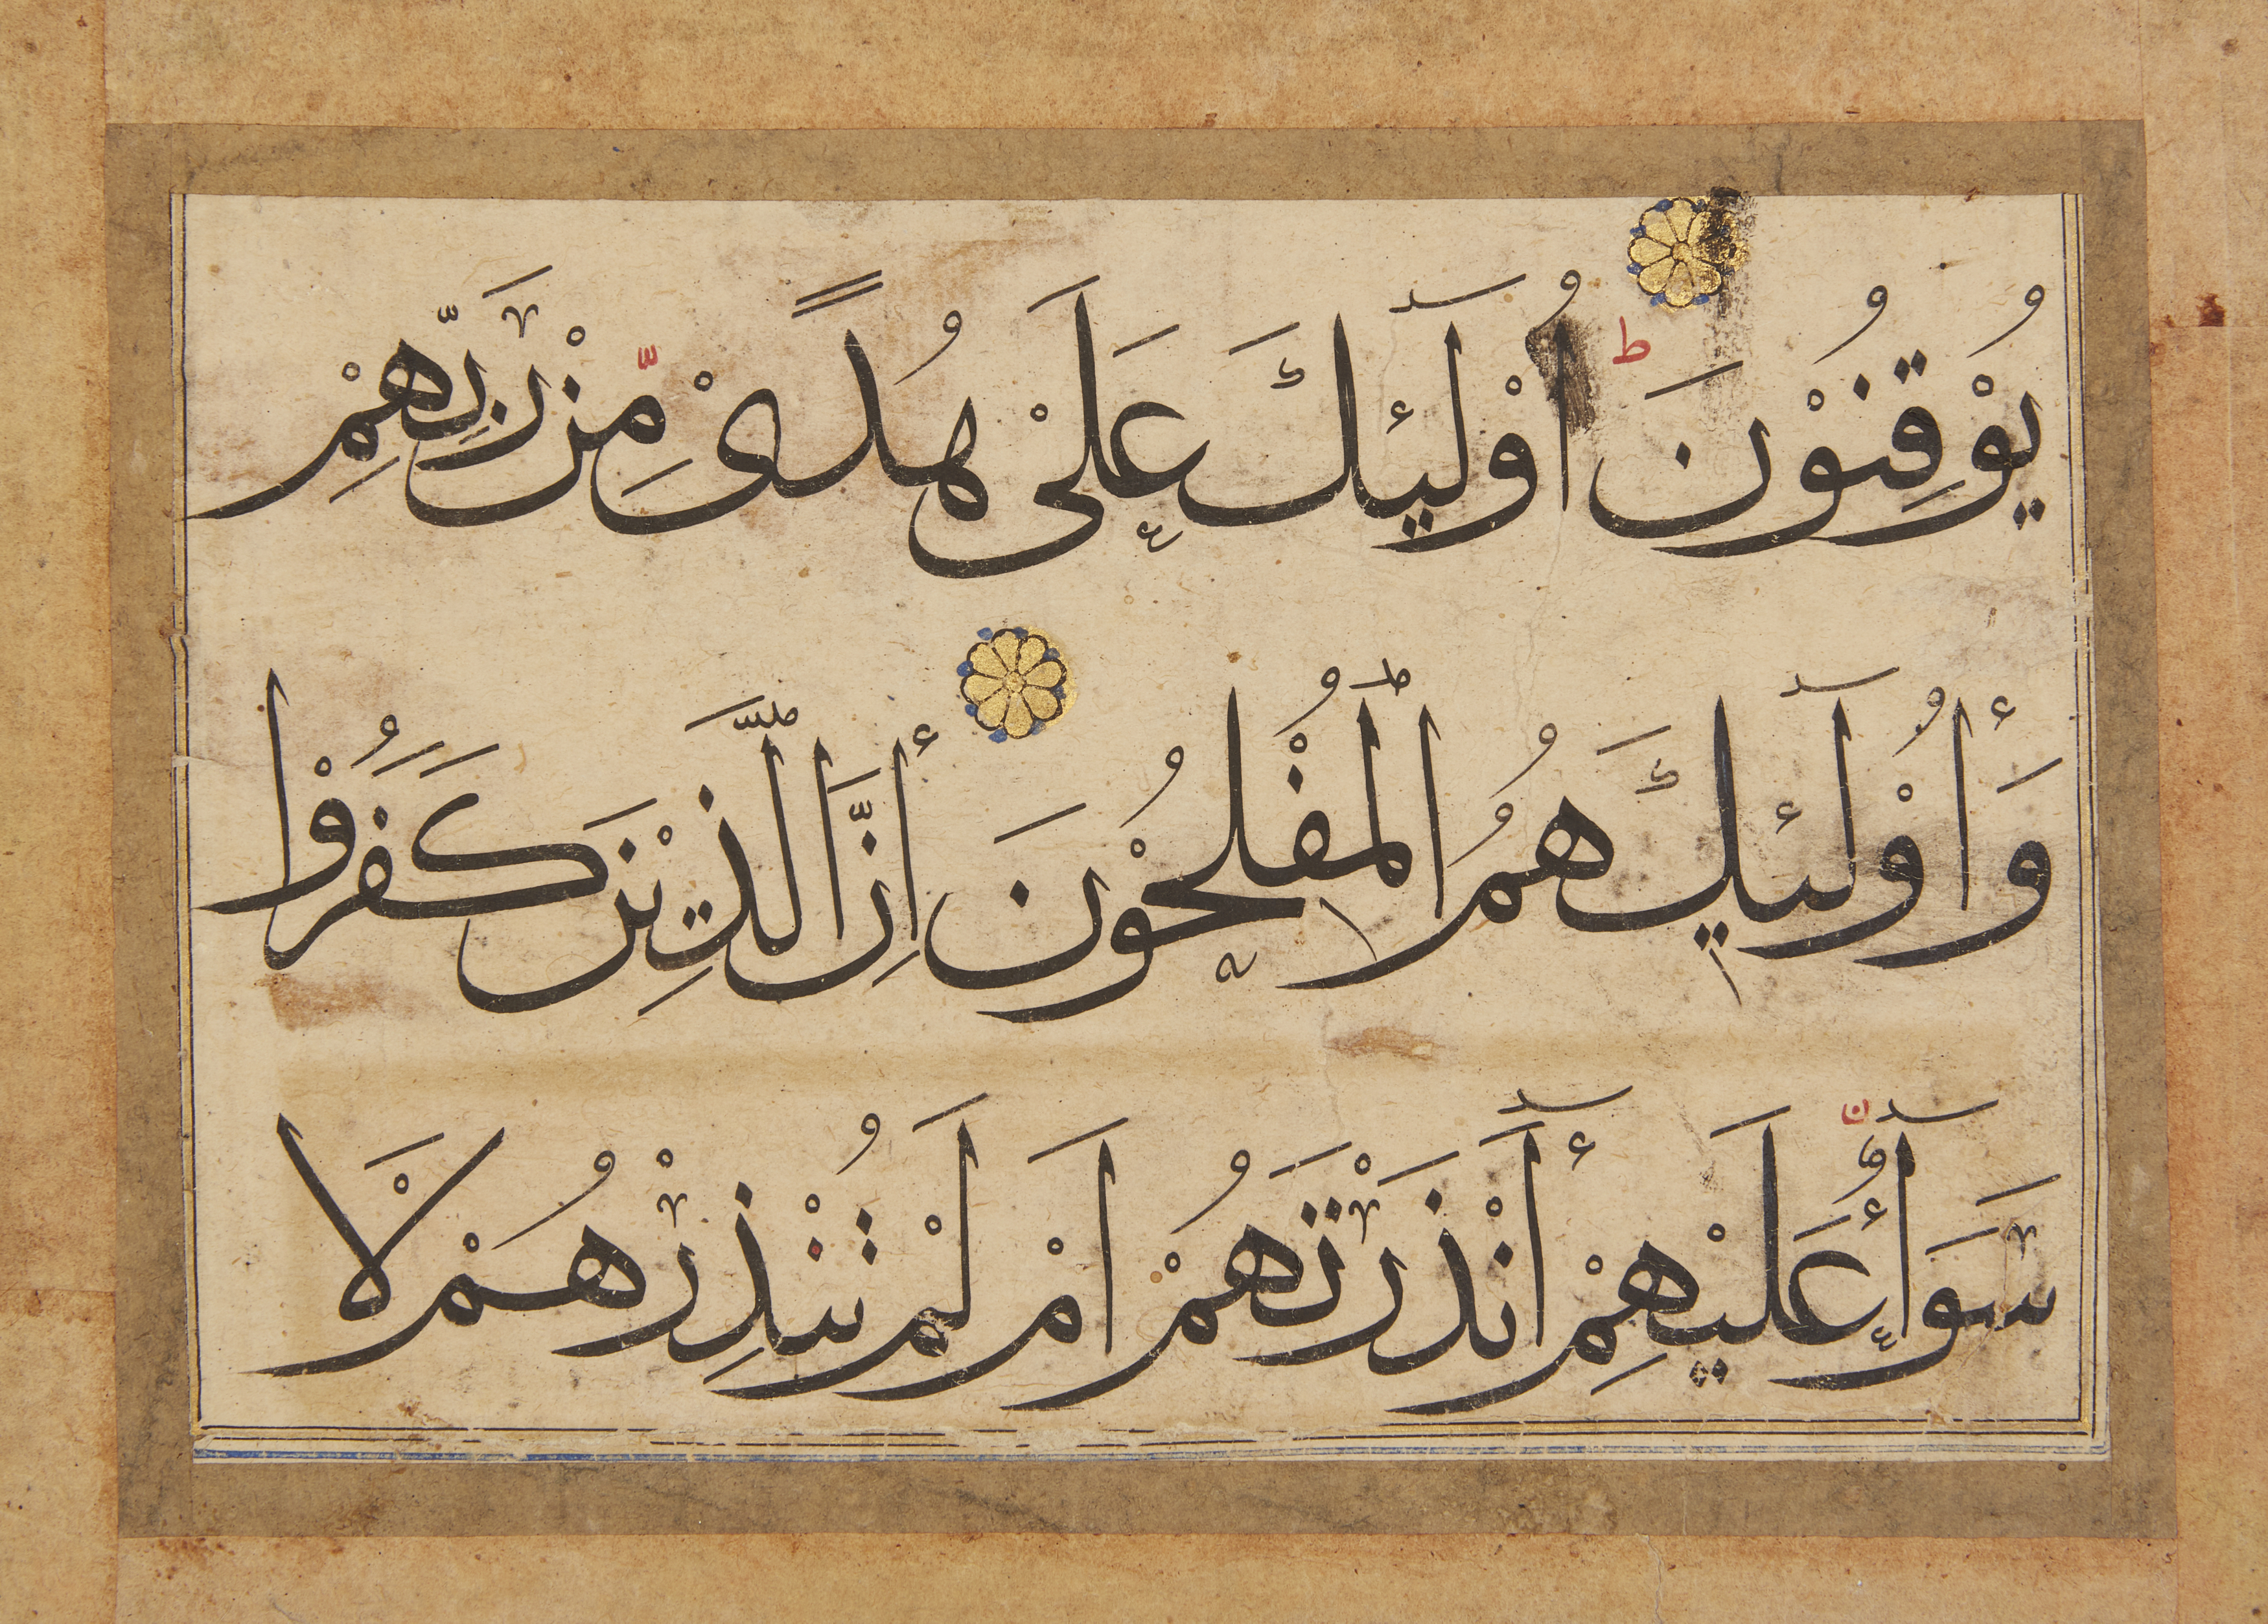 يُوْقِنُوْنَ ط اُوْلَٓئِكَ عَلَىْ هُدًىْ مِّنْ رَبِّهِمْ
وَأُوْلَٓئِكَ هُمُ الْمُفْلِحُوْنَ أِنَّ الَّذِيْنَ كَفَرُوْا
سَوَآءٌ عَلَيْهِمْ أَٓنْذَرْتَهُمْ اَمْ لَمْ تُنْذِرْهُمْ لَاْ